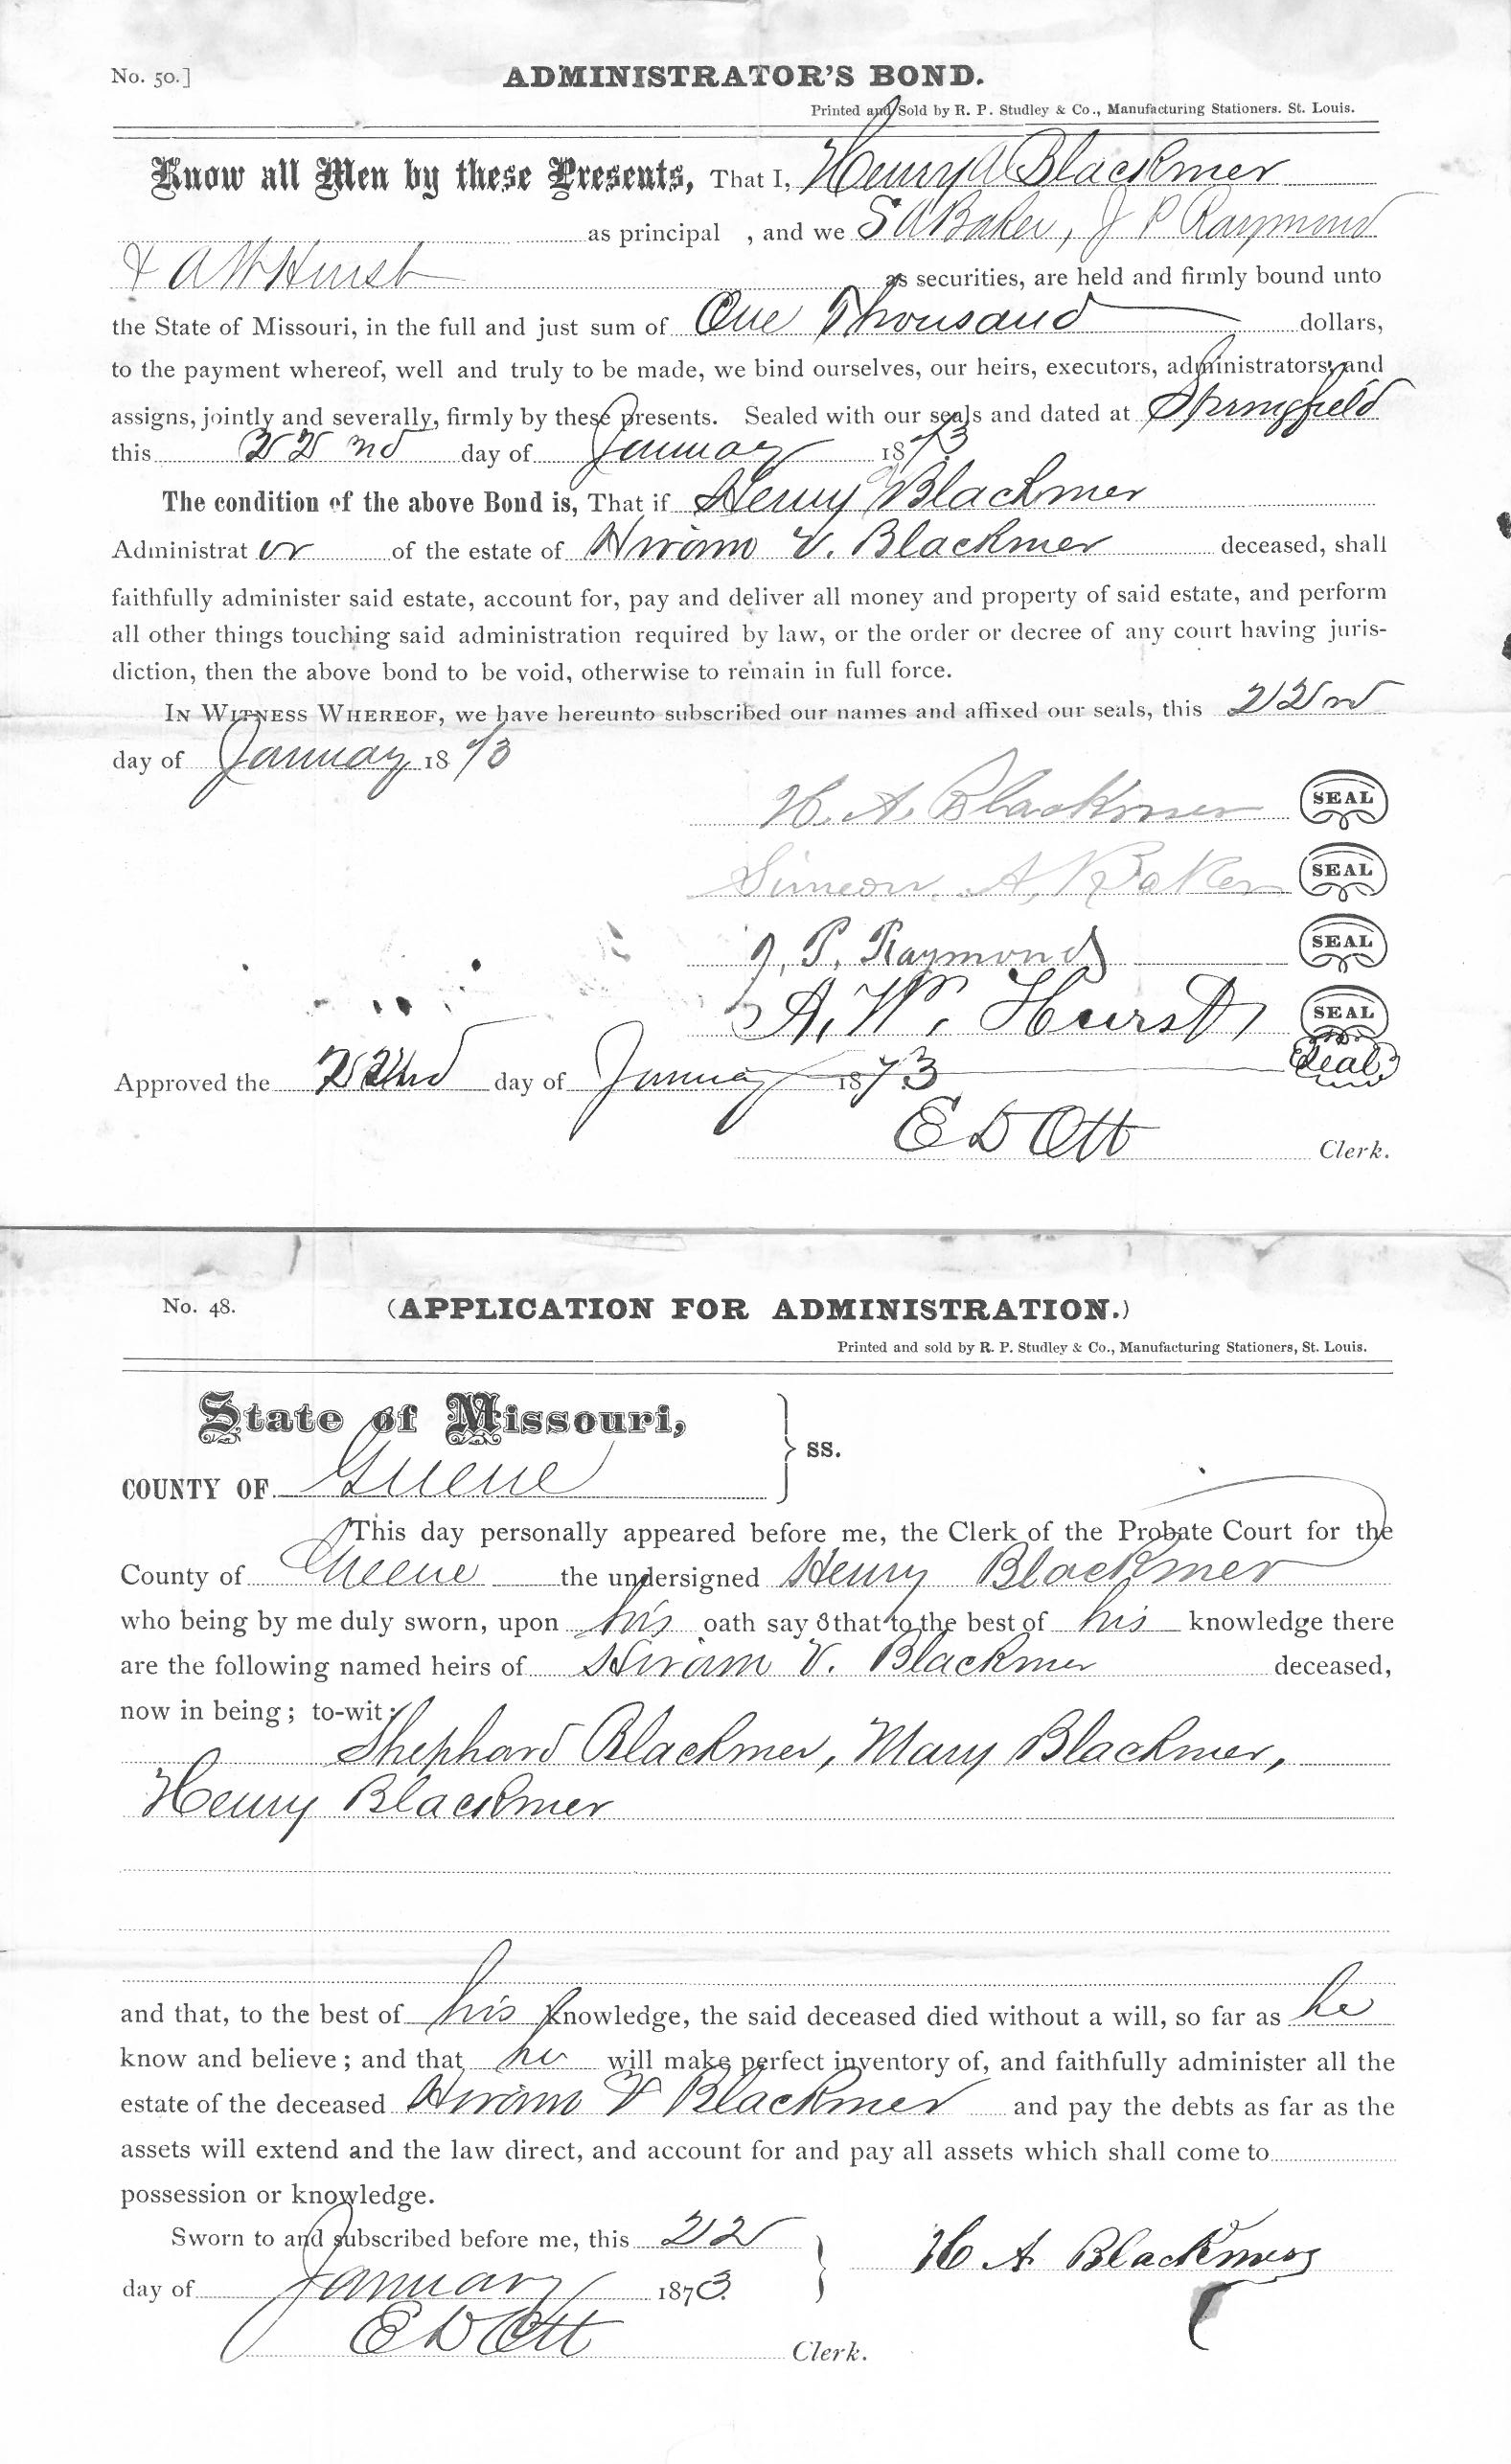 No. 50.]
ADMINISTRATOR'S BOND.
Printed and Sold by R. P. Studley & Co., Manufacturing Stationers. St. Louis.
Know all Men by these Presents, That I, Henry A Blackmer
as principal , and we S A Baker, J P Raymond
& A W Hurst as securities, are held and firmly bound unto
the State of Missouri, in the full and just sum of One Thousand dollars,
to the payment whereof, well and truly to be made, we bind ourselves, our heirs, executors, administrators, and
assigns, jointly and severally, firmly by these presents. Sealed with our seals and dated at Springfield
this 22nd day of January 1873
The condition of the above Bond is, That if Henry Blackmer
Administrator of the estate of Hiram V. Blackmer deceased, shall
faithfully administer said estate, account for, pay and deliver all money and property of said estate, and perform
all other things touching said administration required by law, or the order or decree of any court having juris-
diction, then the above bond to be void, otherwise to remain in full force.
IN WITNESS WHEREOF, we have hereunto subscribed our names and affixed our seals, this 22nd
day of January 1873
H. A. Blackmer SEAL
Simeon A, Baker SEAL
J. P. Raymond SEAL
A. W. Hurst SEAL
Seal
Approved the 22nd day of January 1873
E D Ott Clerk.
No. 48.
(APPLICATION FOR ADMINISTRATION.)
Printed and sold by R. P. Studley & Co., Manufacturing Stationers, St. Louis.
State of Missouri,
COUNTY OF Greene } ss.
This day personally appeared before me, the Clerk of the Probate Court for the
County of Greene the undersigned Henry Blackmer
who being by me duly sworn, upon his oath say s that to the best of his knowledge there
are the following named heirs of Hiram V. Blackmer deceased,
now in being; to-wit:
Shephard Blackmer, Mary Blackmer,
Henry Blackmer
and that, to the best of his knowledge, the said deceased died without a will, so far as he
know and believe; and that he will make perfect inventory of, and faithfully administer all the
estate of the deceased Hiram V Blackmer and pay the debts as far as the
assets will extend and the law direct, and account for and pay all assets which shall come to
possession or knowledge.
Sworn to and subscribed before me, this 22
day of January 1873. } H A Blackmer
E D Ott Clerk.